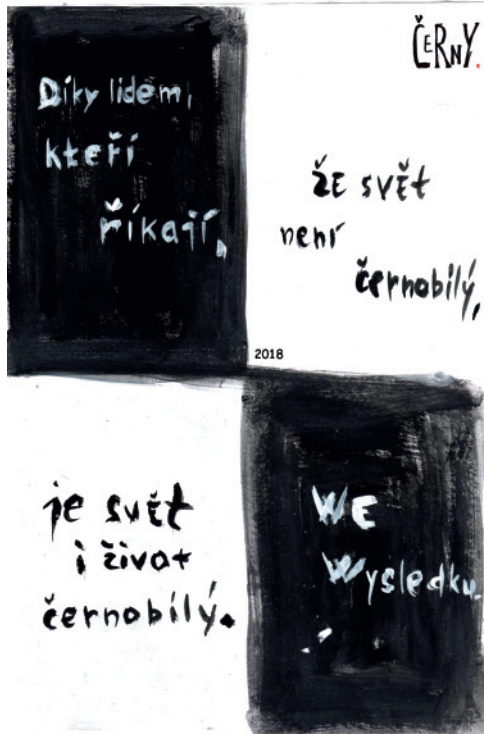 ČERNÝ.
Díky lidem,
kteří
říkají,
že svět
není
černobílý,
2018
je svět
i život
černobílý.
WE
Wysledku.